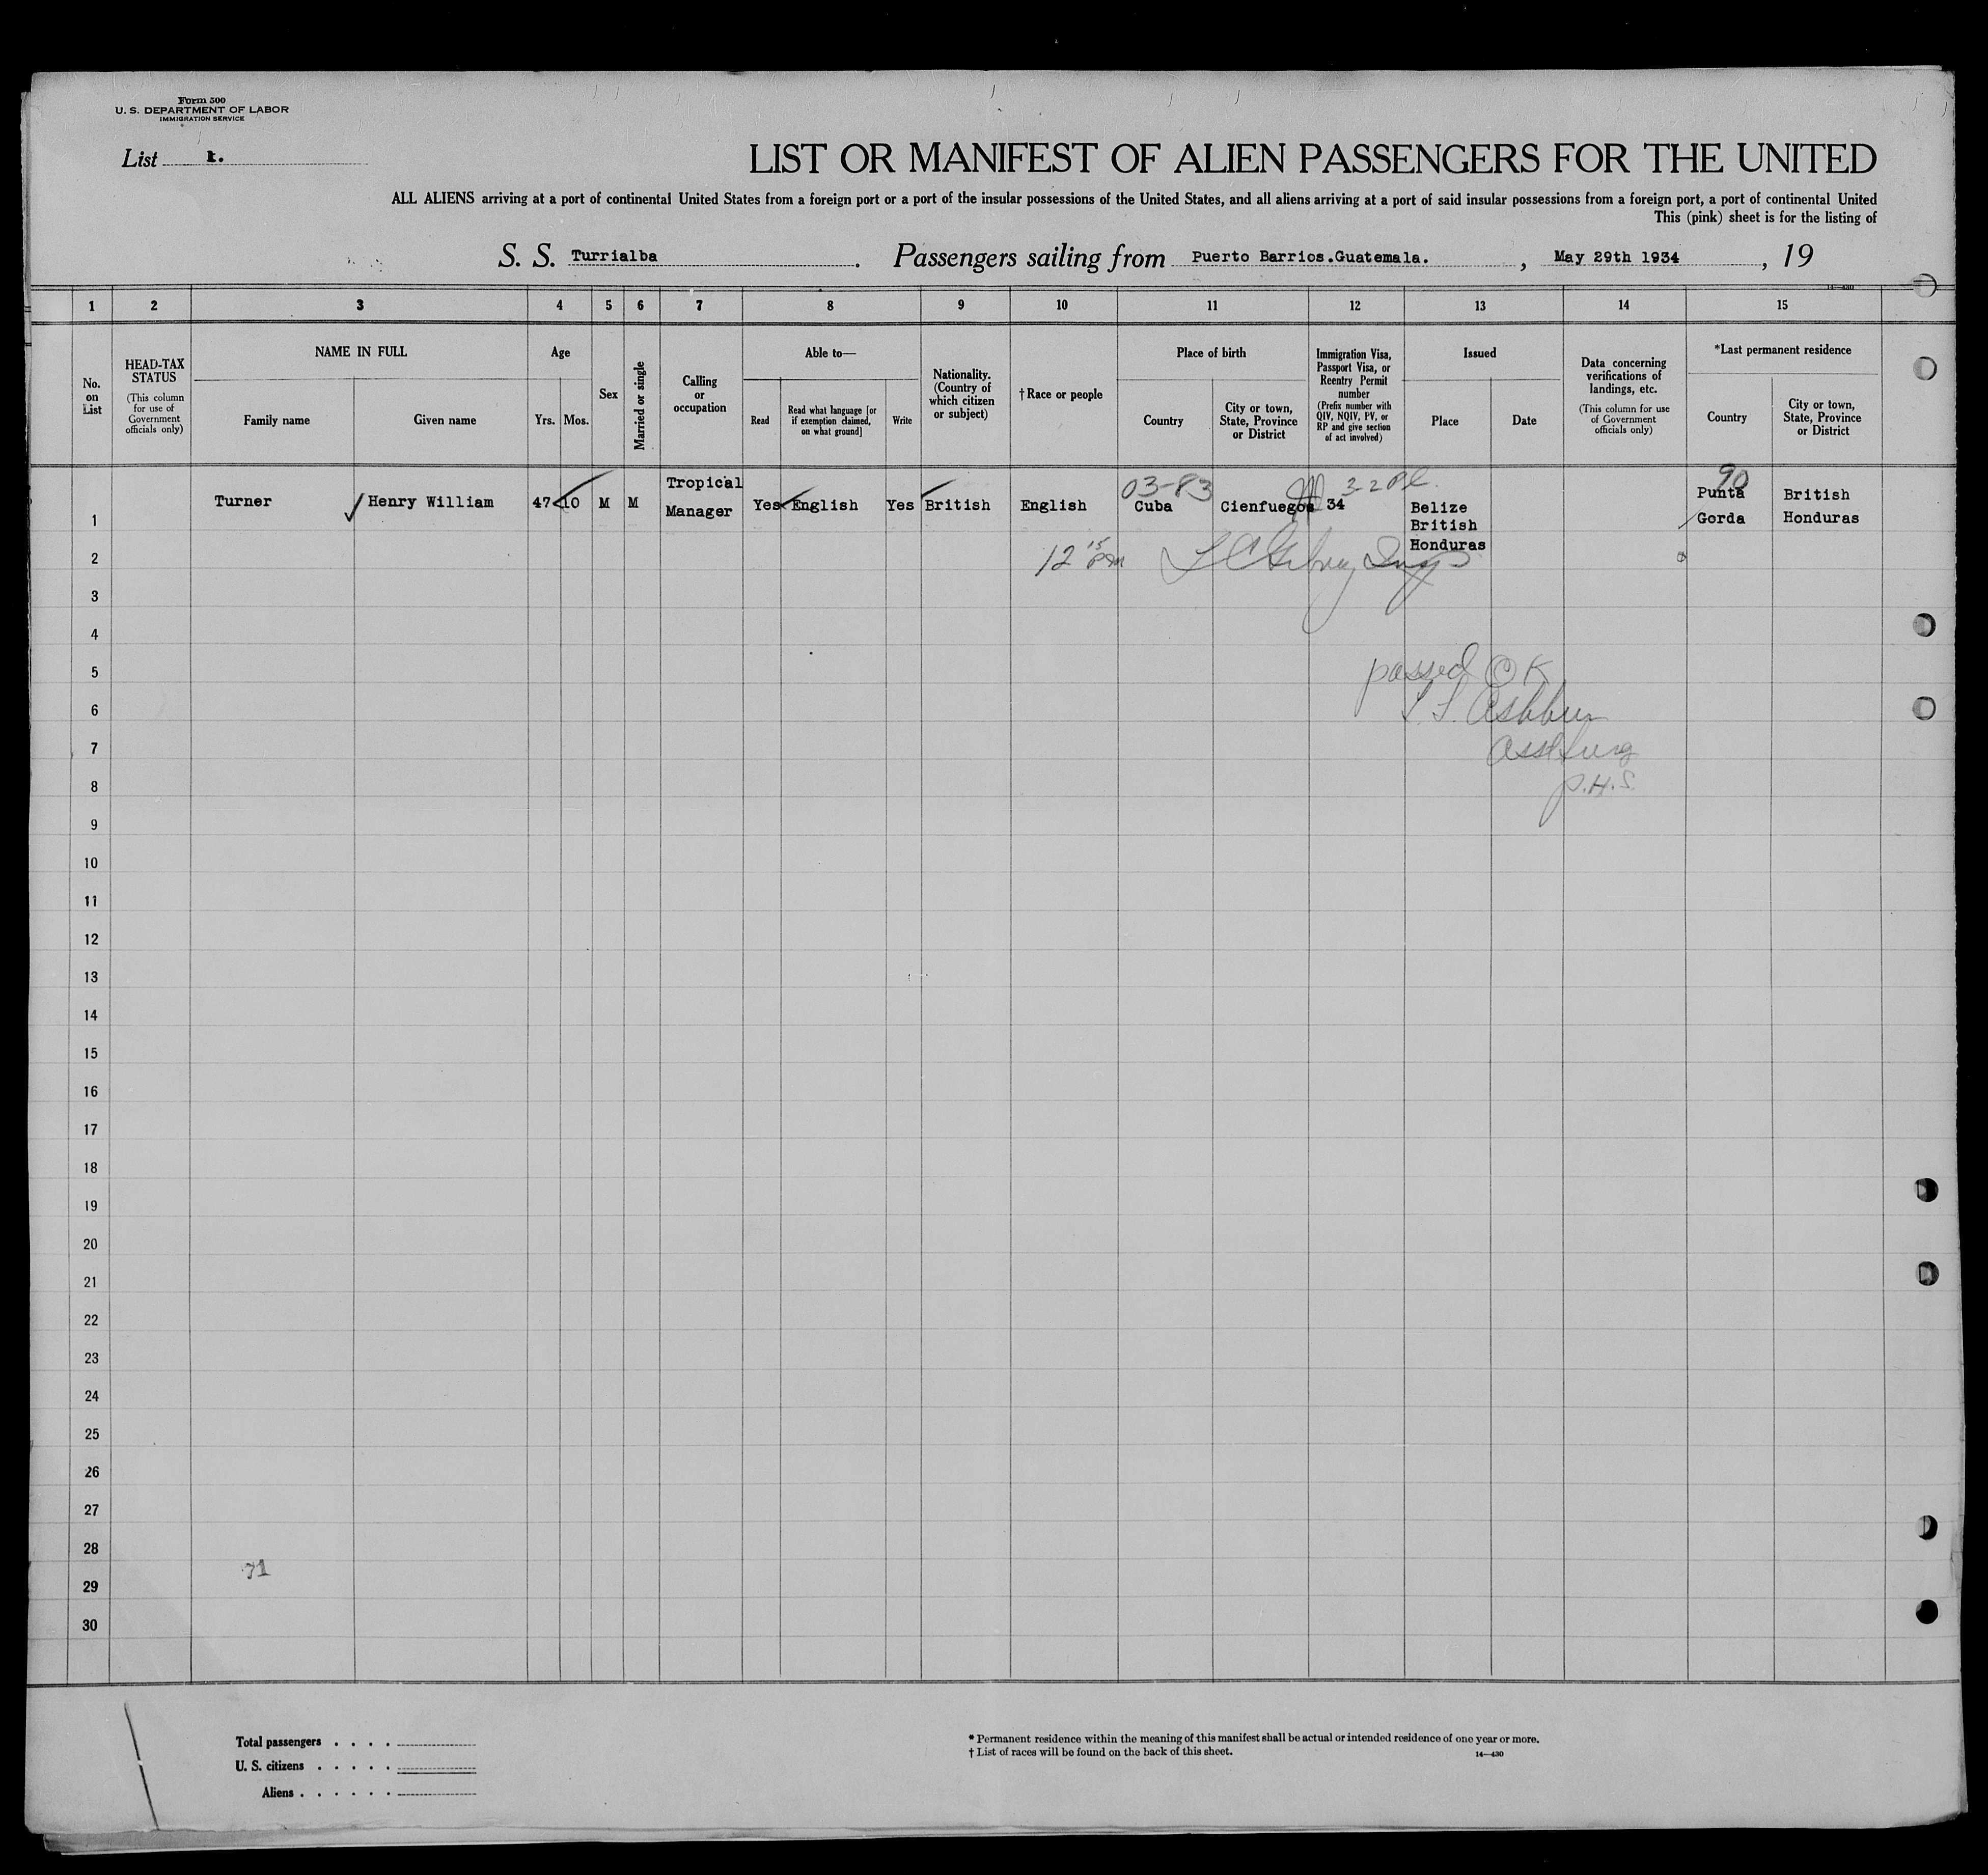 Form 500
U. S. DEPARTMENT OF LABOR
IMMIGRATION SERVICE
List 1.
LIST OR MANIFEST OF ALIEN PASSENGERS FOR THE UNITED
ALL ALIENS arriving at a port of continental United States from a foreign port or a port of the insular possessions of the United States, and all aliens arriving at a port of said insular possessions from a foreign port, a port of continental United
This (pink) sheet is for the listing of
S. S. Turrialba. Passengers sailing from Puerto Barrios.Guatemala., May 29th 1934, 19
14—430
1 2 3 4 5 6 7 8 9 10 11 12 13 14 15
No. on List
HEAD-TAX STATUS
(This column for use of Government officials only)
NAME IN FULL
Family name
Given name
Age
Yrs.
Mos.
Sex
Married or single
Calling or occupation
Able to—
Read
Read what language [or if exemption claimed, on what ground]
Write
Nationality. (Country of which citizen or subject)
† Race or people
Place of birth
Country
City or town, State, Province or District
Immigration Visa, Passport Visa, or Reentry Permit number
(Prefix number with QIV, NQIV, PV, or RP and give section of act involved)
Issued
Place
Date
Data concerning verifications of landings, etc.
(This column for use of Government officials only)
*Last permanent residence
Country
City or town, State, Province or District
03-83
90
1 Turner Henry William 47 10 M M Tropical Manager Yes English Yes British English Cuba Cienfuegos 34 Belize British Honduras Punta Gorda British Honduras
2
12 15 pm
3
4
5
passed OK
6
7
8
P.H.S.
9
10
11
12
13
14
15
16
17
18
19
20
21
22
23
24
25
26
27
28
71
29
30
Total passengers . . . .
U. S. citizens . . . . .
Aliens . . . . . .
* Permanent residence within the meaning of this manifest shall be actual or intended residence of one year or more.
† List of races will be found on the back of this sheet.
14—430